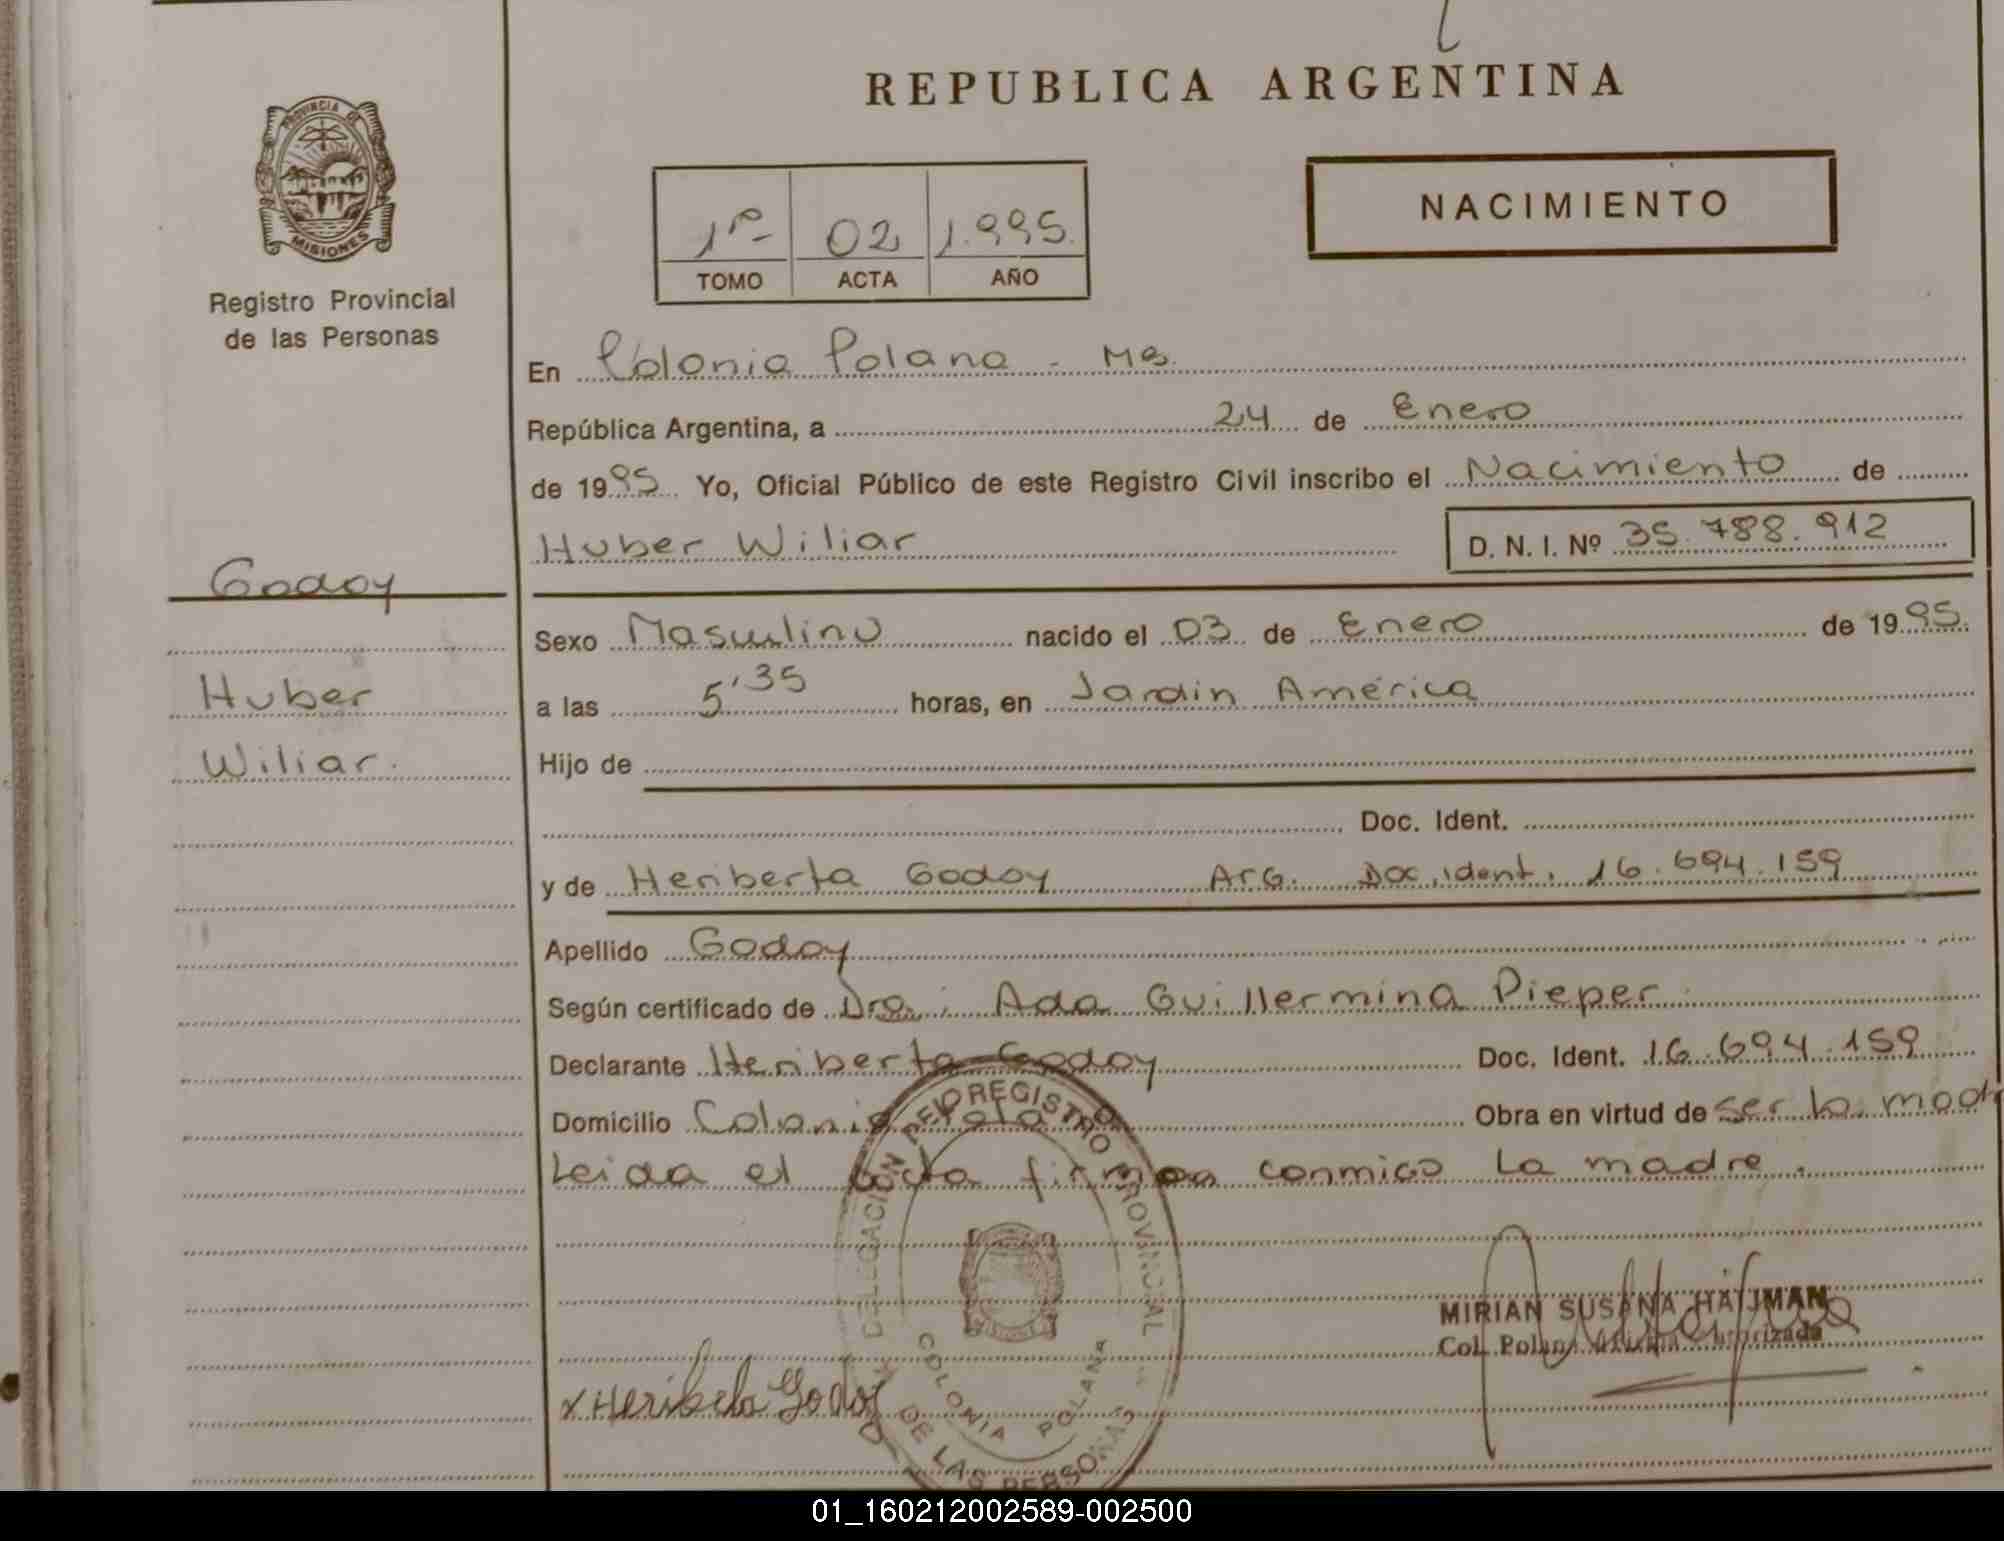 REPUBLICA ARGENTINA
PROVINCIA DE MISIONES
Registro Provincial
de las Personas
NACIMIENTO
1º- 02 1.995.
TOMO ACTA AÑO
En Colonia Polana - Ms.
República Argentina, a 24 de Enero
de 1995 Yo, Oficial Público de este Registro Civil inscribo el Nacimiento de
Huber Wiliar D. N. I. Nº 35.788.912
Godoy
Huber
Wiliar.
Sexo Masculino nacido el 03 de Enero de 1995.
a las 5'35 horas, en Jardin América
Hijo de
Doc. Ident.
y de Heriberta Godoy Arg. Doc. ident. 16.694.159
Apellido Godoy
Según certificado de Dra. Ada Guillermina Pieper.
Declarante Heriberta Godoy Doc. Ident. 16.694.159
Domicilio Colonia Polana Obra en virtud de ser la madre
Leida el acta firma conmigo La madre.
DELEGACIÓN DEL REGISTRO PROVINCIAL DE LAS PERSONAS
COLONIA POLANA
MIRIAN SUSANA
Col. Polana Autorizada
x Heriberta Godoy
01_160212002589-002500